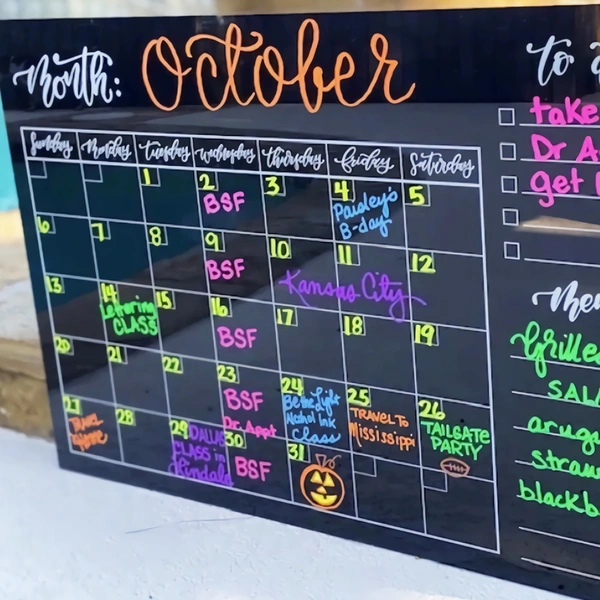 Month: October
to
take
Dr A
get
Sunday Monday Tuesday Wednesday Thursday Friday Saturday
1 2 3 4 5
BSF Paisley's
B-day
6 7 8 9 10 11 12
BSF Kansas City
13 14 15 16 17 18 19
Lettering
CLASS BSF
20 21 22 23 24 25 26
BSF Be the Light TRAVEL TO TAILGATE
Dr. Appt Alcohol Ink Mississippi PARTY
Class
27 28 29 30 31
TRAVEL DALLAS BSF
Home CLASS in
Grille
SAL
arugu
straw
blackb